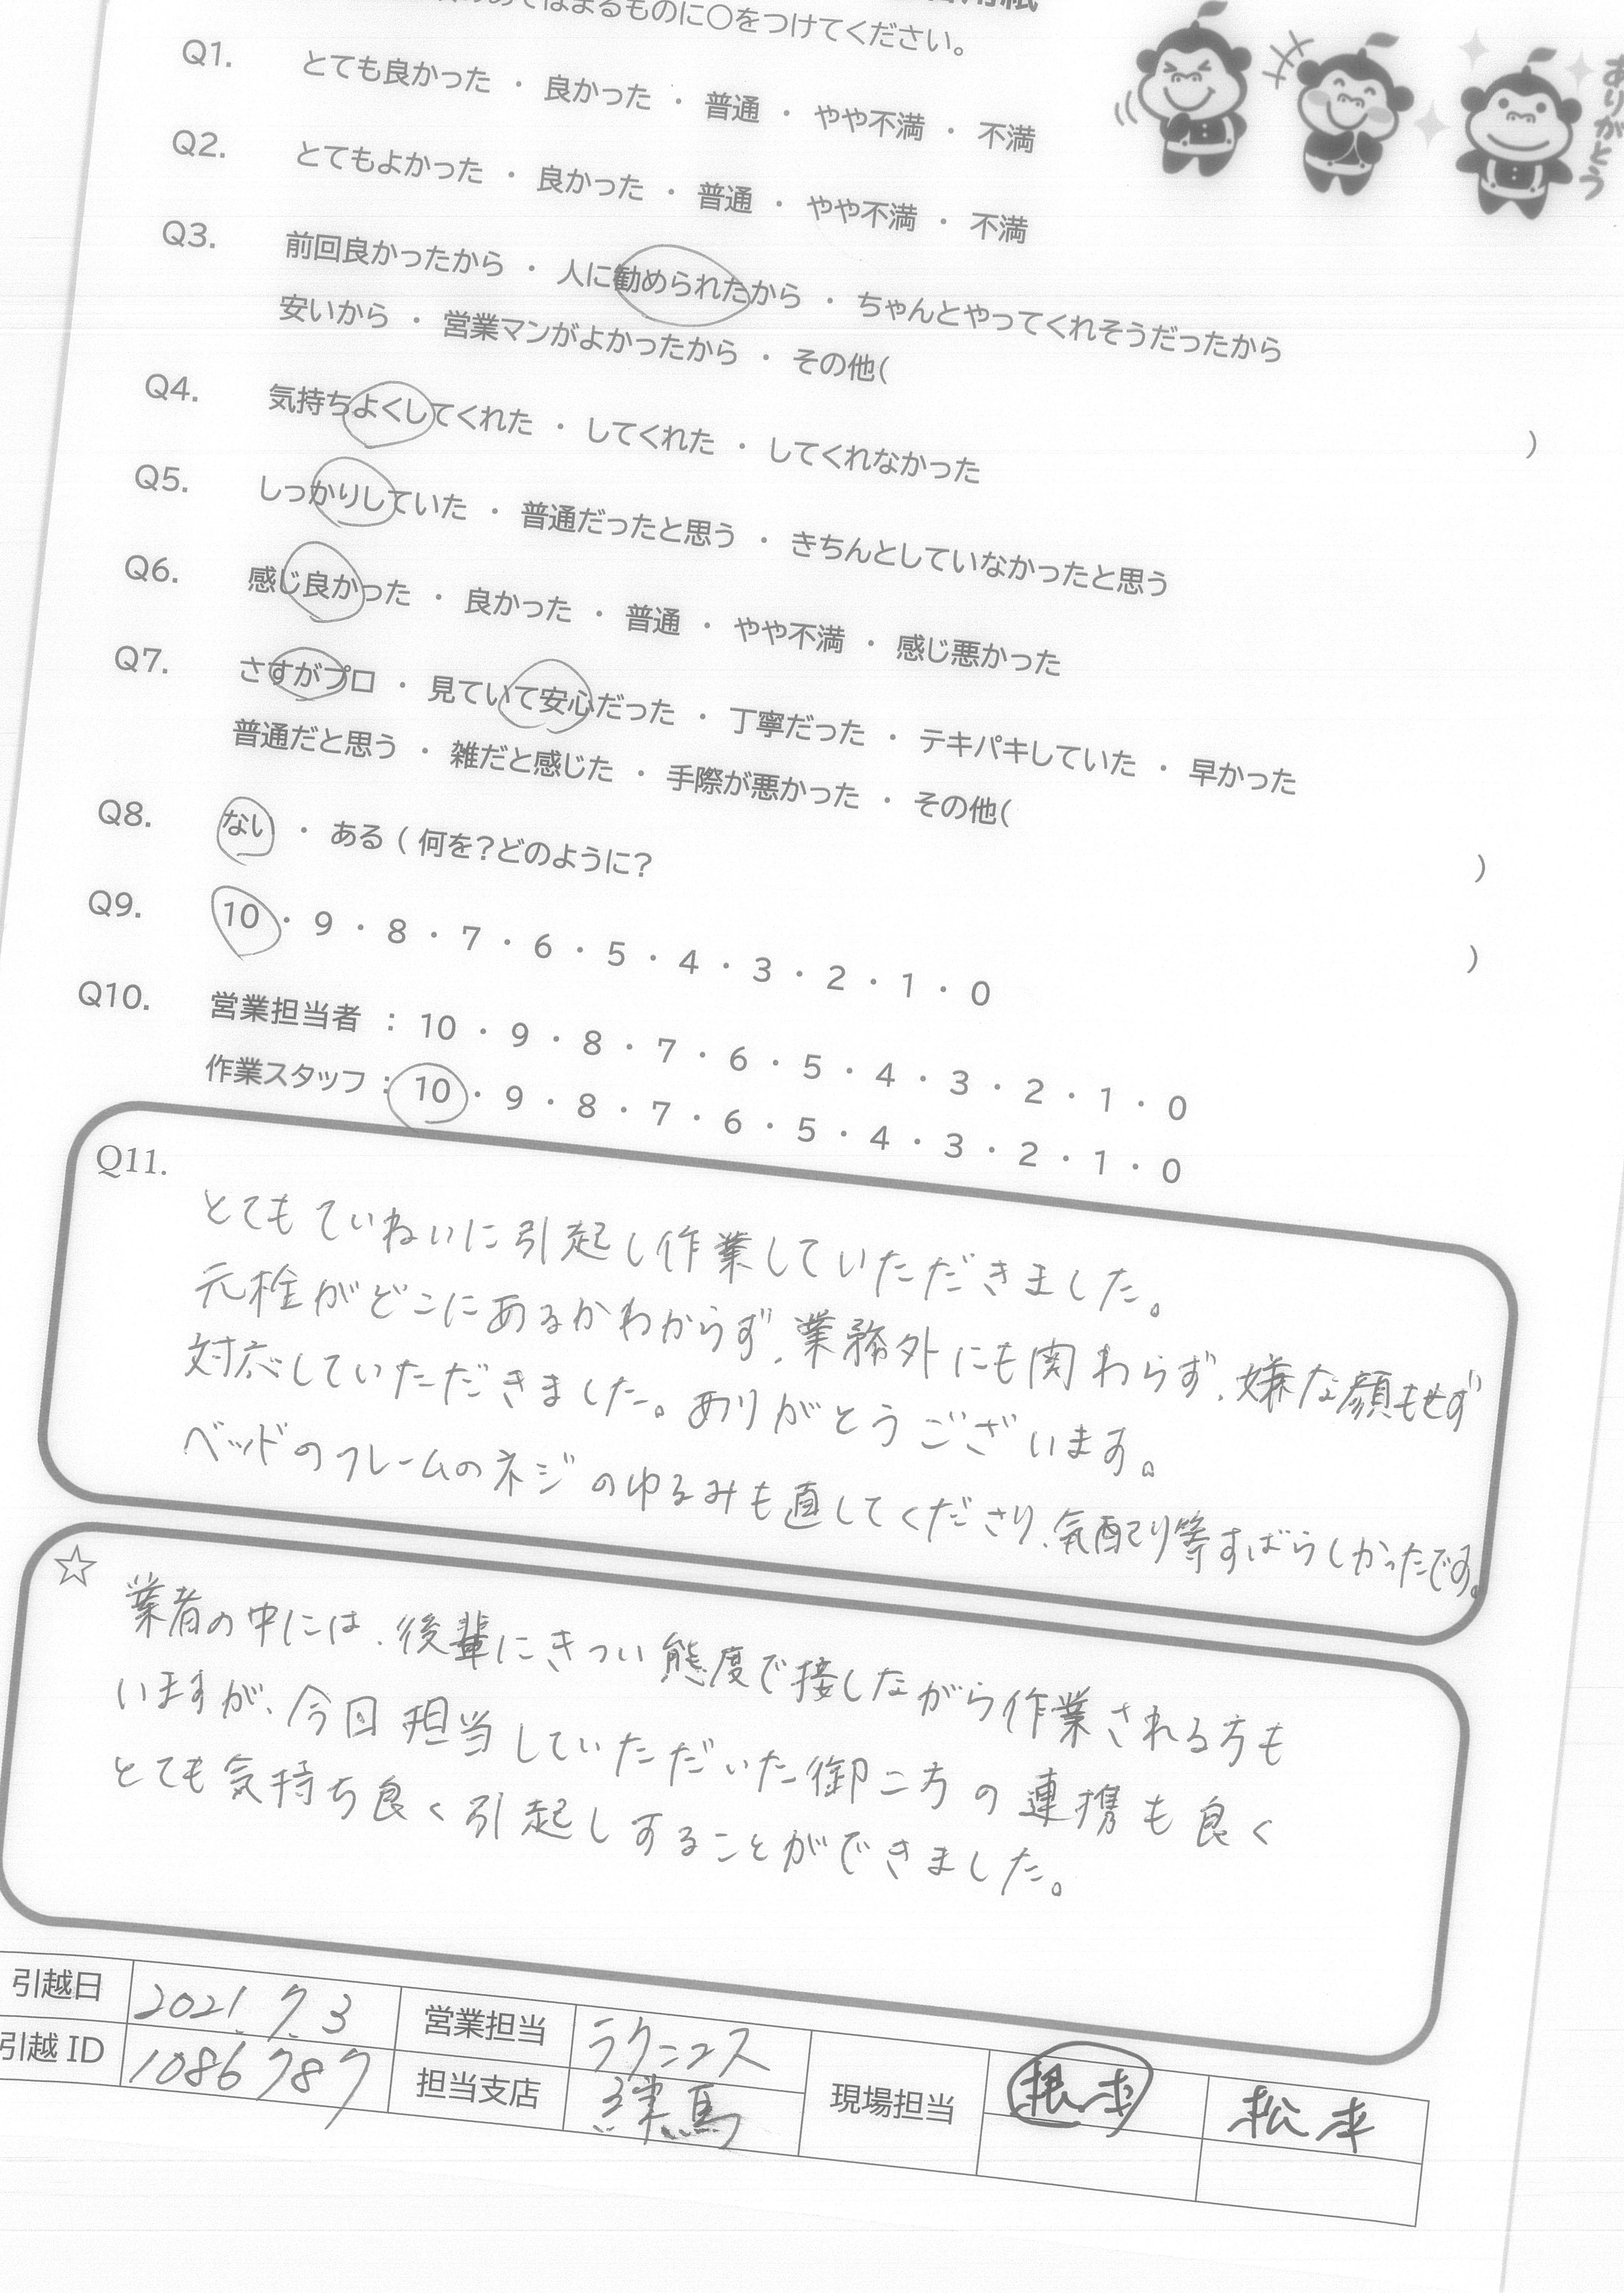 あてはまるものに○をつけてください。
ありがとう
Q1. とても良かった ・ 良かった ・ 普通 ・ やや不満 ・ 不満
Q2. とてもよかった ・ 良かった ・ 普通 ・ やや不満 ・ 不満
Q3. 前回良かったから ・ 人に勧められたから ・ ちゃんとやってくれそうだったから
安いから ・ 営業マンがよかったから ・ その他( )
Q4. 気持ちよくしてくれた ・ してくれた ・ してくれなかった
Q5. しっかりしていた ・ 普通だったと思う ・ きちんとしていなかったと思う
Q6. 感じ良かった ・ 良かった ・ 普通 ・ やや不満 ・ 感じ悪かった
Q7. さすがプロ ・ 見ていて安心だった ・ 丁寧だった ・ テキパキしていた ・ 早かった
普通だと思う ・ 雑だと感じた ・ 手際が悪かった ・ その他( )
Q8. ない ・ ある ( 何を?どのように? )
Q9. 10 ・ 9 ・ 8 ・ 7 ・ 6 ・ 5 ・ 4 ・ 3 ・ 2 ・ 1 ・ 0
Q10. 営業担当者 : 10 ・ 9 ・ 8 ・ 7 ・ 6 ・ 5 ・ 4 ・ 3 ・ 2 ・ 1 ・ 0
作業スタッフ : 10 ・ 9 ・ 8 ・ 7 ・ 6 ・ 5 ・ 4 ・ 3 ・ 2 ・ 1 ・ 0
Q11.
とてもていねいに引起し作業していただきました。
元栓がどこにあるかわからず、業務外にも関わらず、嫌な顔もせず
対応していただきました。ありがとうございます。
ベッドのフレームのネジのゆるみも直してくださり、気配り等すばらしかったです。
☆
業者の中には、後輩にきつい態度で接しながら作業される方も
いますが、今日担当していただいた御二方の連携も良く
とても気持ち良く引起しすることができました。
引越日 2021.7.3 営業担当 ラクニコス 現場担当 根本 松本
引越 ID 1086787 担当支店 練馬